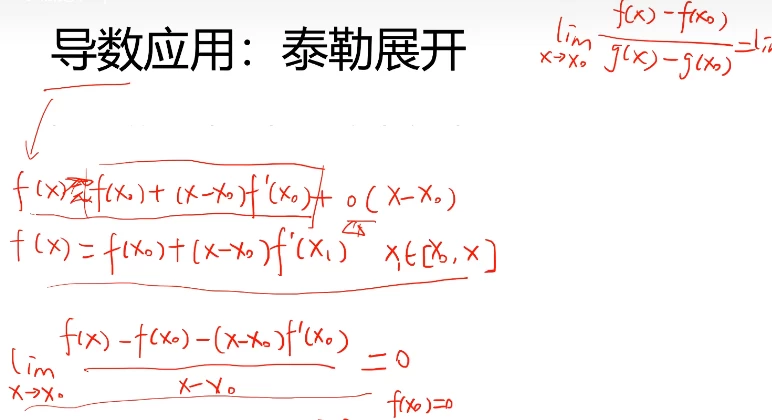 导数应用：泰勒展开
lim x→x₀ f(x)-f(x₀) / g(x)-g(x₀) = li
f(x) f(x₀)+(x-x₀)f'(x₀)+o(x-x₀)
f(x)=f(x₀)+(x-x₀)f'(x₁) x₁∈[x₀,x]
lim x→x₀ f(x)-f(x₀)-(x-x₀)f'(x₀) / x-x₀ =0
f(x₀)=0